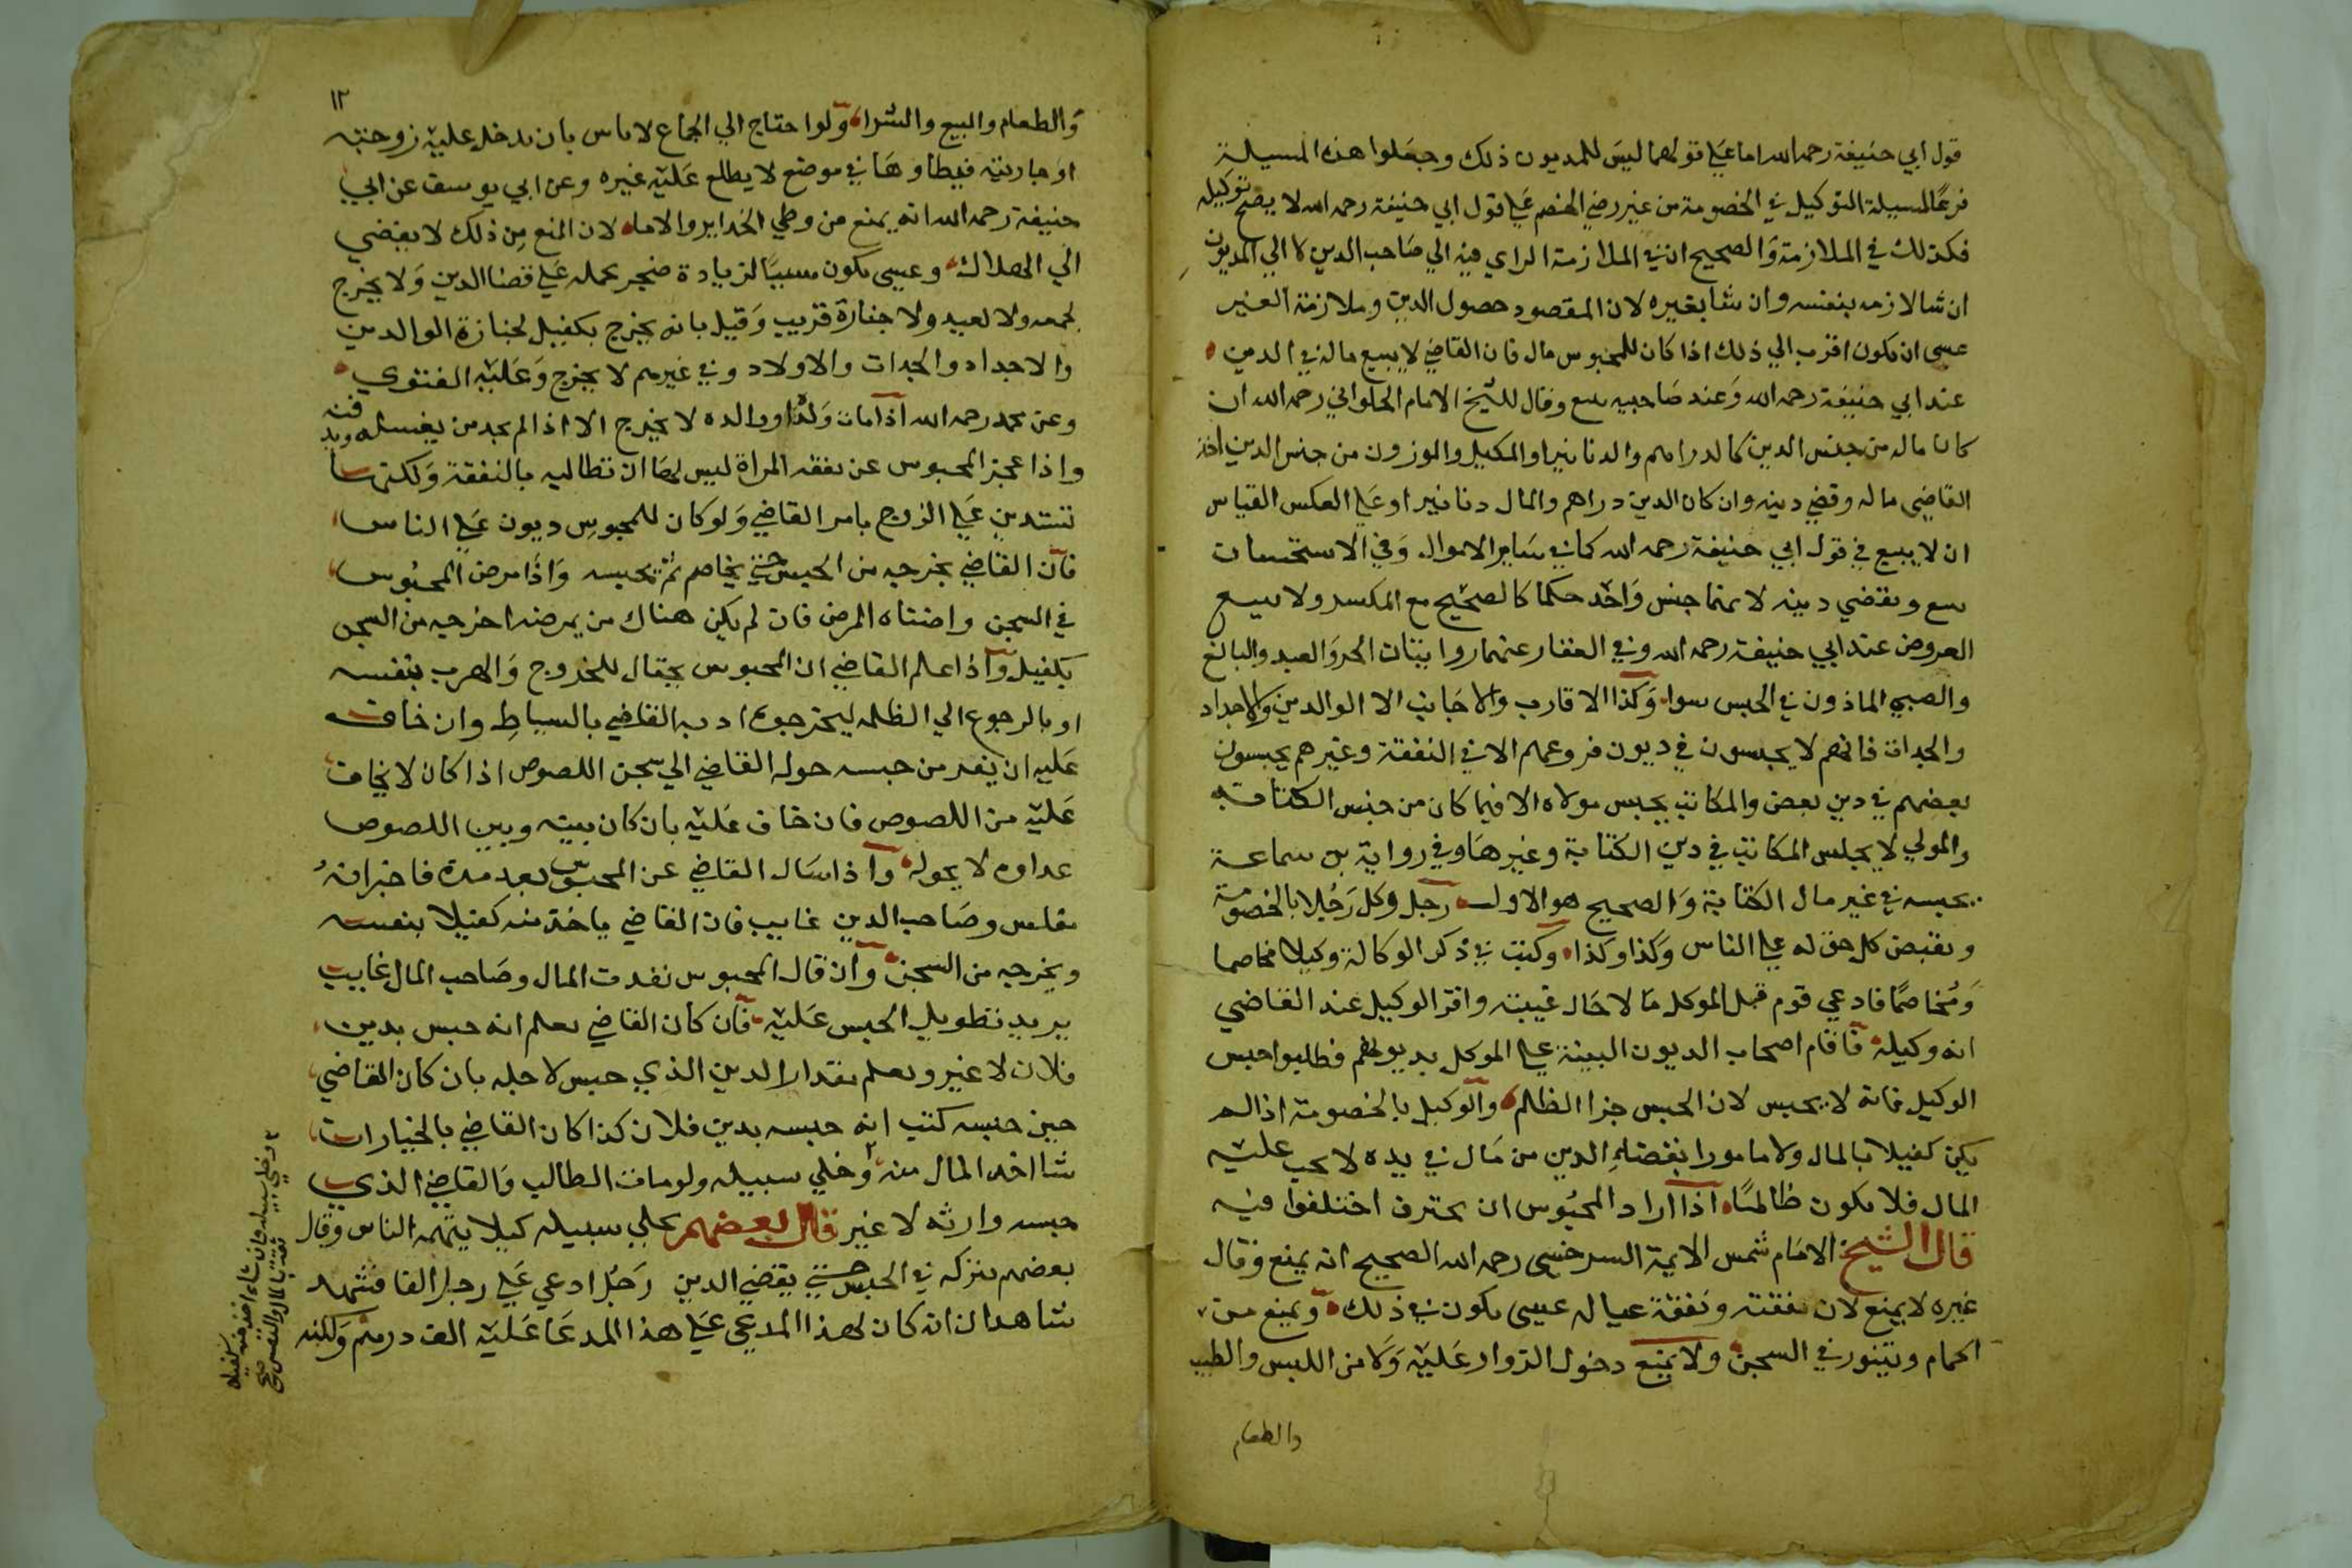 قول ابي حنيفة رحمه الله اما علي قولهما ليس للمديون ذلك وجعلوا هذه المسيلة
فرعا لمسيلة التوكيل في الخصومة من غير رضي الخصم علي قول ابي حنيفة رحمه الله لا يصح توكيله
فكذلك في الملازمة والصحيح ان في الملازمة الراي فيه الي صاحب الدين لا الي المديون
ان شا لازمه بنفسه وان شا بغيره لان المقصود حصول الدين وملازمة الغير
عسى ان يكون اقرب الي ذلك اذا كان للمحبوس مال فان القاضي لا يبيع ماله في الدين
عند ابي حنيفة رحمه الله وعند صاحبيه يبيع وقال للشيخ الامام الحلواني رحمه الله ان
كان ماله من جنس الدين كالدراهم والدنانير او المكيل والموزون من جنس الدين اخذ
القاضي ماله وقضي دينه وان كان الدين دراهم والمال دنانير او علي العكس القياس
ان لا يبيع في قول ابي حنيفة رحمه الله كما في ساير الاموال وفي الاستحسان
يبيع ويقضي دينه لانهما جنس واحد حكما كالصحيح مع المكسر ولا يبيع
العروض عند ابي حنيفة رحمه الله وفي العقار عنهما روايتان الحر والعبد والبالغ
والصبي الماذون في الحبس سوا وكذا الاقارب والاجانب الا الوالدين والاجداد
والجدات فانهم لا يحبسون في ديون فروعهم الا في النفقة وغيرهم يحبسون
بعضهم في دين بعض والمكاتب يحبس مولاه الا فيما كان من جنس الكتابة
والمولي لا يحبس المكاتب في دين الكتابة وغيرها وفي رواية بن سماعة
يحبسه في غير مال الكتابة والصحيح هو الاول رجل وكل رجلا بالخصومة
وبقبض كل حق له علي الناس وكذا وكذا وكتب في ذكر الوكالة وكيلا مخاصما
ومخاصما فادعي قوم قبل الموكل مالا حال غيبته واقر الوكيل عند القاضي
انه وكيله فاقام اصحاب الديون البينة علي الموكل بديونهم فطلبوا حبس
الوكيل فانه لا يحبس لان الحبس جزا الظلم والوكيل بالخصومة اذا لم
يكن كفيلا بالمال ولا مامورا بقضاء الدين من مال في يده لا يجب عليه
المال فلا يكون ظالما اذا اراد المحبوس ان يحترف اختلفوا فيه
قال الشيخ الامام شمس الايمة السرخسي رحمه الله الصحيح انه يمنع وقال
غيره لا يمنع لان نفقته ونفقة عياله عسى يكون في ذلك ويمنع من
الحمام ويتنور في السجن ولا يمنع دخول الزوار عليه ولا من اللبس والطيب
والطعام
١٢
والطعام والبيع والشرا ولو احتاج الي الجماع لا باس بان يدخل عليه زوجته
او جاريته فيطاوها في موضع لا يطلع عليه غيره وعن ابي يوسف عن ابي
حنيفة رحمه الله انه يمنع من وطي الحراير والاماء لان المنع من ذلك لا يفضي
الي الهلاك وعسى يكون سببا لزيادة ضجر يحمله علي قضا الدين ولا يخرج
لجمعه ولا لعيد ولا جنازة قريب وقيل بانه يخرج بكفيل لجنازة الوالدين
والاجداد والجدات والاولاد وفي غيرهم لا يخرج وعليه الفتوي
وعن محمد رحمه الله اذا مات ولد او والده لا يخرج الا اذا لم يجد من يغسله ويدفنه
واذا عجز المحبوس عن نفقة المراة ليس لها ان تطالبه بالنفقة ولكنها
تستدين علي الزوج بامر القاضي ولو كان للمحبوس ديون علي الناس
فان القاضي يخرجه من الحبس حتي يخاصم ثم يحبسه واذا مرض المحبوس
في السجن واضناه المرض فان لم يكن هناك من يمرضه اخرجه من السجن
بكفيل واذا علم القاضي ان المحبوس يحتال للخروج والهرب بنفسه
او بالرجوع الي الظلمه ليخرجوه ادبه القاضي بالسياط وان خاف
عليه ان يفر من حبسه حوله القاضي الي سجن اللصوص اذا كان لا يخاف
عليه من اللصوص فان خاف عليه بان كان بينه وبين اللصوص
عداوه لا يحوله واذا سال القاضي عن المحبوس بعد مدة فاخبر انه
مفلس وصاحب الدين غايب فان القاضي ياخذ منه كفيلا بنفسه
ويخرجه من السجن وان قال المحبوس نقدت المال وصاحب المال غايب
يريد تطويل الحبس عليه فان كان القاضي يعلم انه حبس بدين
فلان لا غير ويعلم مقدار الدين الذي حبس لاجله بان كان القاضي
حين حبسه كتب انه حبسه بدين فلان كذا كان القاضي بالخيار ان
شا اخذ المال منه وخلي سبيله ولو مات الطالب والقاضي الذي
حبسه وارثه لا غير قال بعضهم يخلي سبيله كيلا يتهمه الناس وقال
بعضهم يتركه في الحبس حتي يقضي الدين رجل ادعي علي رجل الفا فشهد
شاهدان انه كان لهذا المدعي علي هذا المدعا عليه الف درهم ولكنه
وخلي سبيله وان شاء اخذ منه كفيلا
ثقة بالمال والنفس